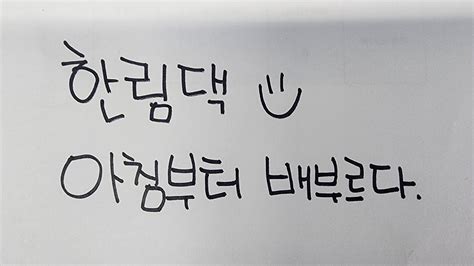 한림댁 :)
아침부터 배부르다.